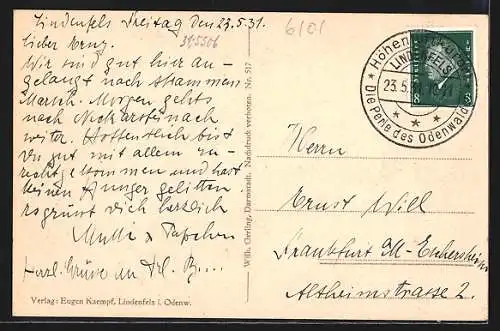 Lindenfels Freitag den 22.5.31.
lieber Ernz.
Wir sind gut hier an-
gelangt nach strammen
Marsch. Morgen gehts
nach Neckarsteinach
weiter. Hoffentlich bist
Du gut mit allem zu-
recht gekommen und hast
keinen Hunger gelitten
es grüsst Dich herzlich
Mutti &
Herzl. Grüsse an Frl.
Verlag: Eugen Kaempf, Lindenfels i. Odenw.
315506
6101
Wilh. Gerling, Darmstadt. Nachdruck verboten. Nr. 517
Höhen
LINDENFELS
23.5.31
Die Perle des Odenwalds
8 8
Herrn
Ernst Will
Frankfurt a/M-Eschersheim
Altheimstrasse 2.